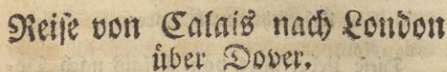 Reiſe von Calais nach London
über Dover.